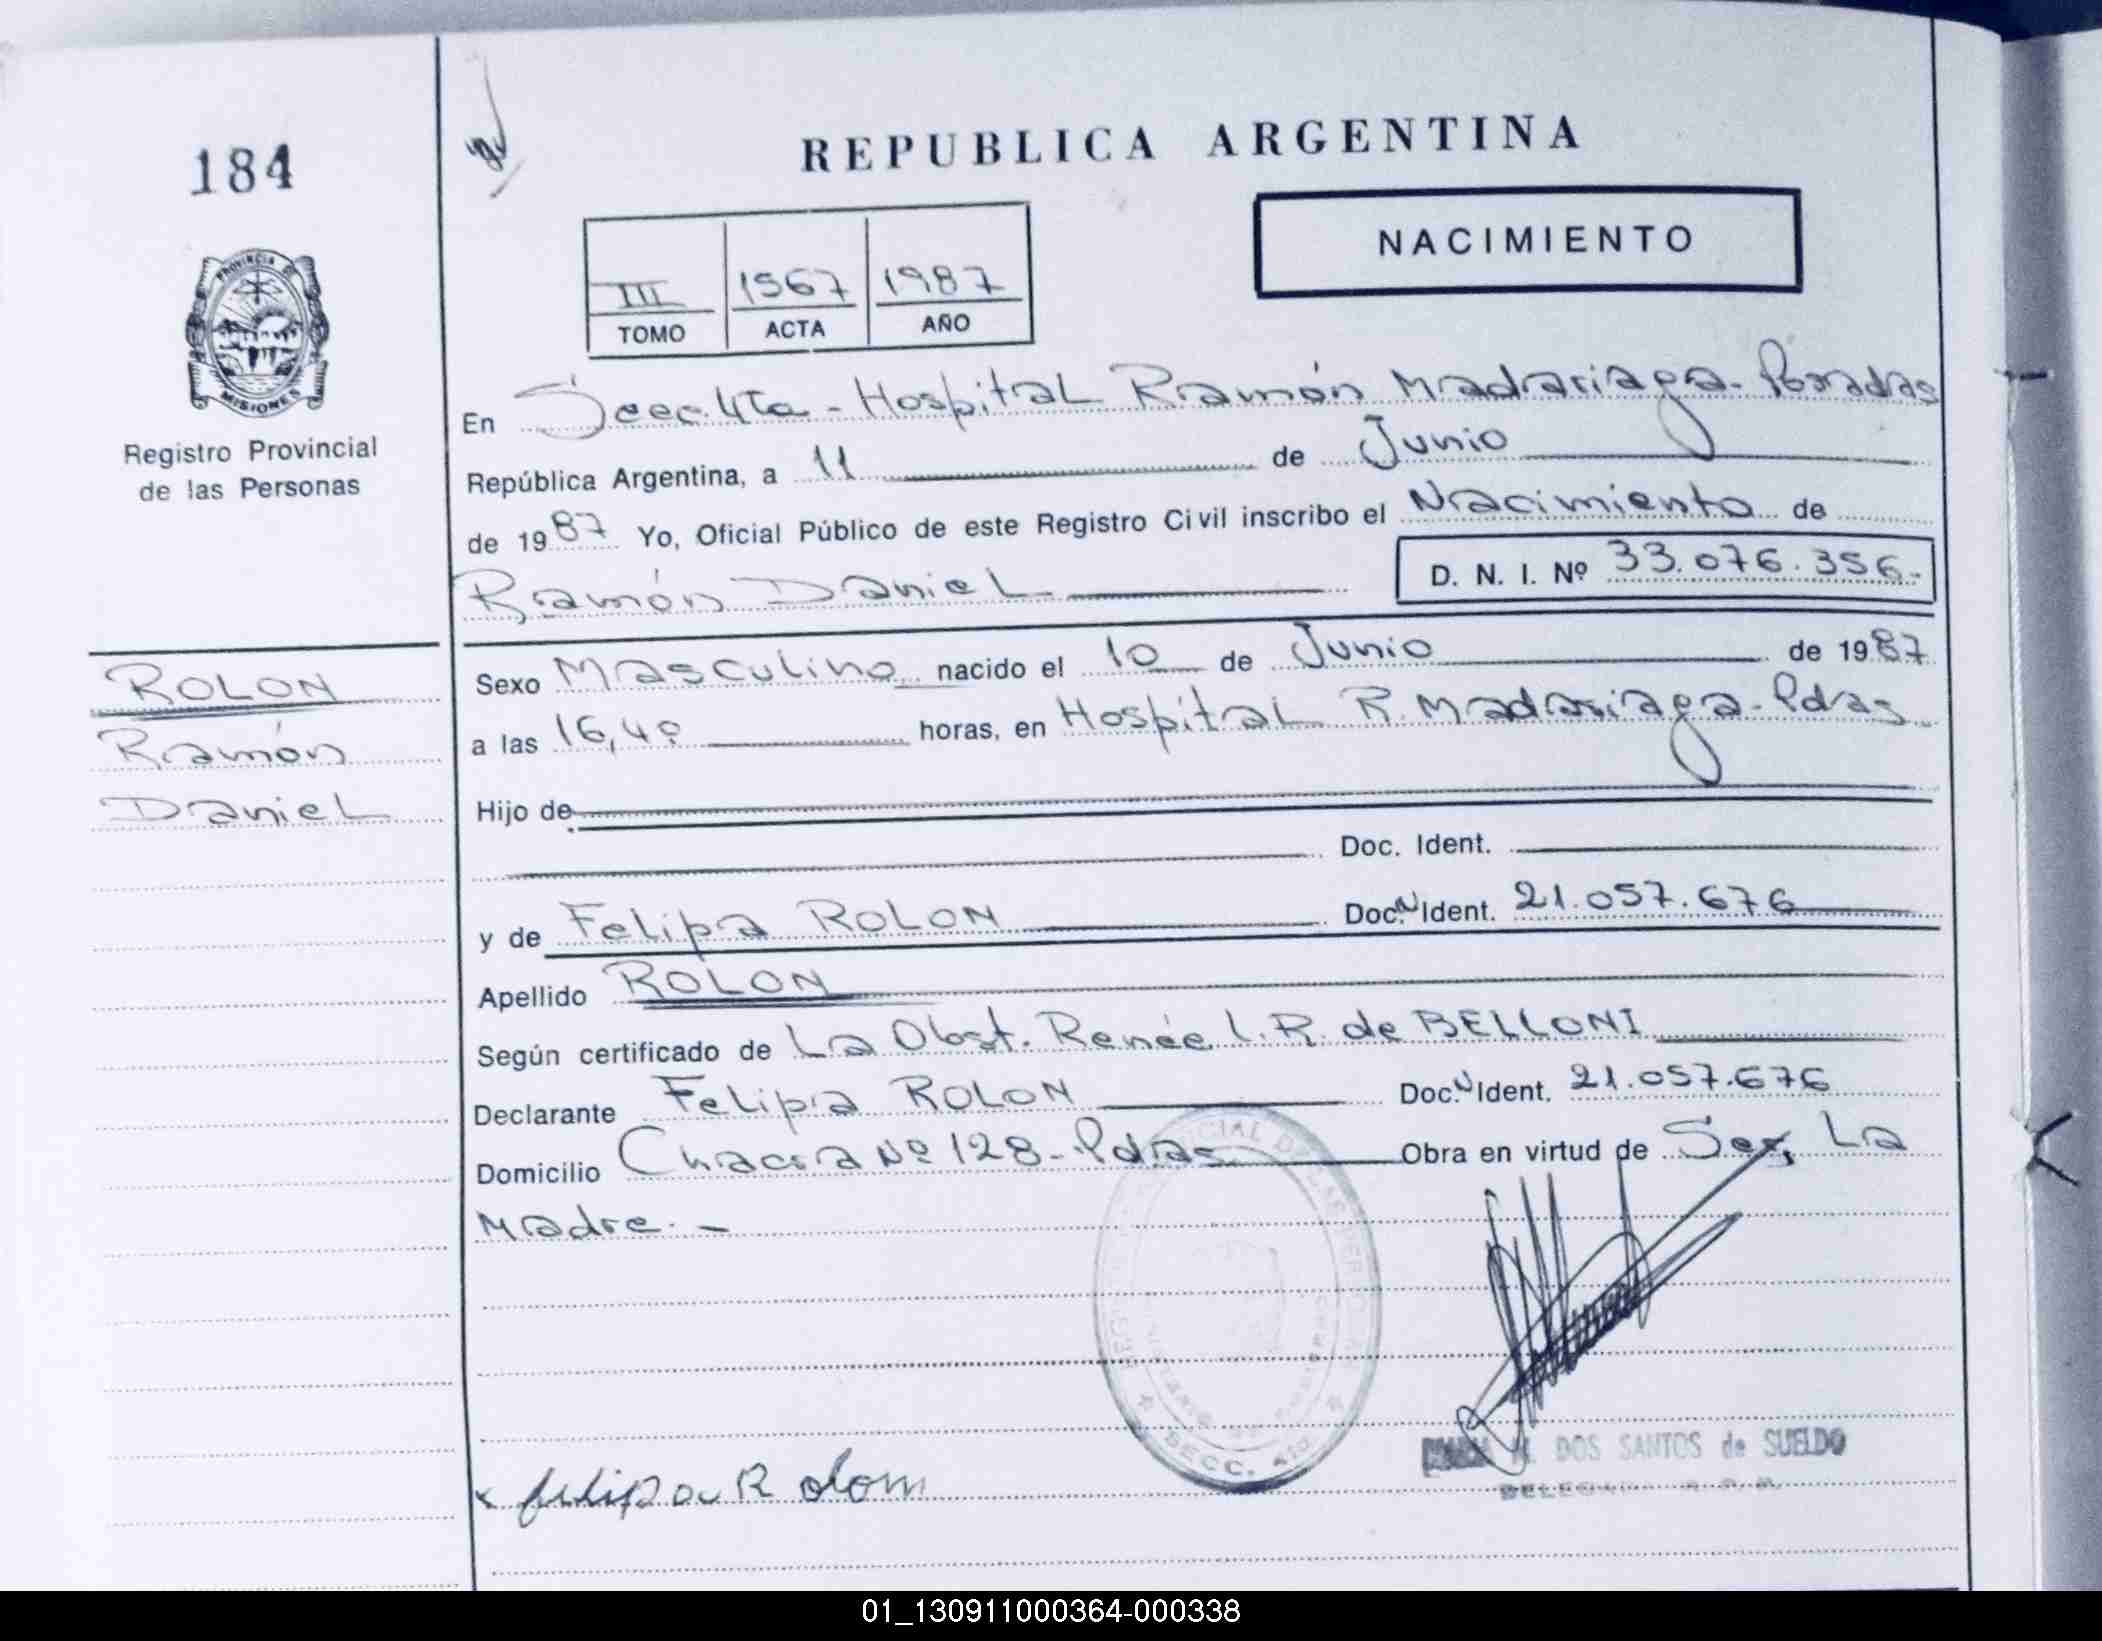 184
REPUBLICA ARGENTINA
NACIMIENTO
III 1567 1987
TOMO ACTA AÑO
PROVINCIA DE
MISIONES
Registro Provincial
de las Personas
En Secc. 4ta - Hospital Ramón Madariaga - Posadas
República Argentina, a 11 de Junio
de 1987 Yo, Oficial Público de este Registro Civil inscribo el Nacimiento de
Ramón Daniel D. N. I. Nº 33.076.356.-
ROLON
Ramón
Daniel
Sexo Masculino nacido el 10 de Junio de 1987
a las 16,40 horas, en Hospital R. Madariaga - Pdas
Hijo de
Doc. Ident.
y de Felipa ROLON Doc. N Ident. 21.057.676
Apellido ROLON
Según certificado de La Obst. Renée L. R. de BELLONI
Declarante Felipa ROLON Doc. N Ident. 21.057.676
Domicilio Chacra Nº 128 - Pdas Obra en virtud de Ser La
Madre. -
SECC. 4ta
DOS SANTOS de SUELDO
x felipa Rolom
01_130911000364-000338